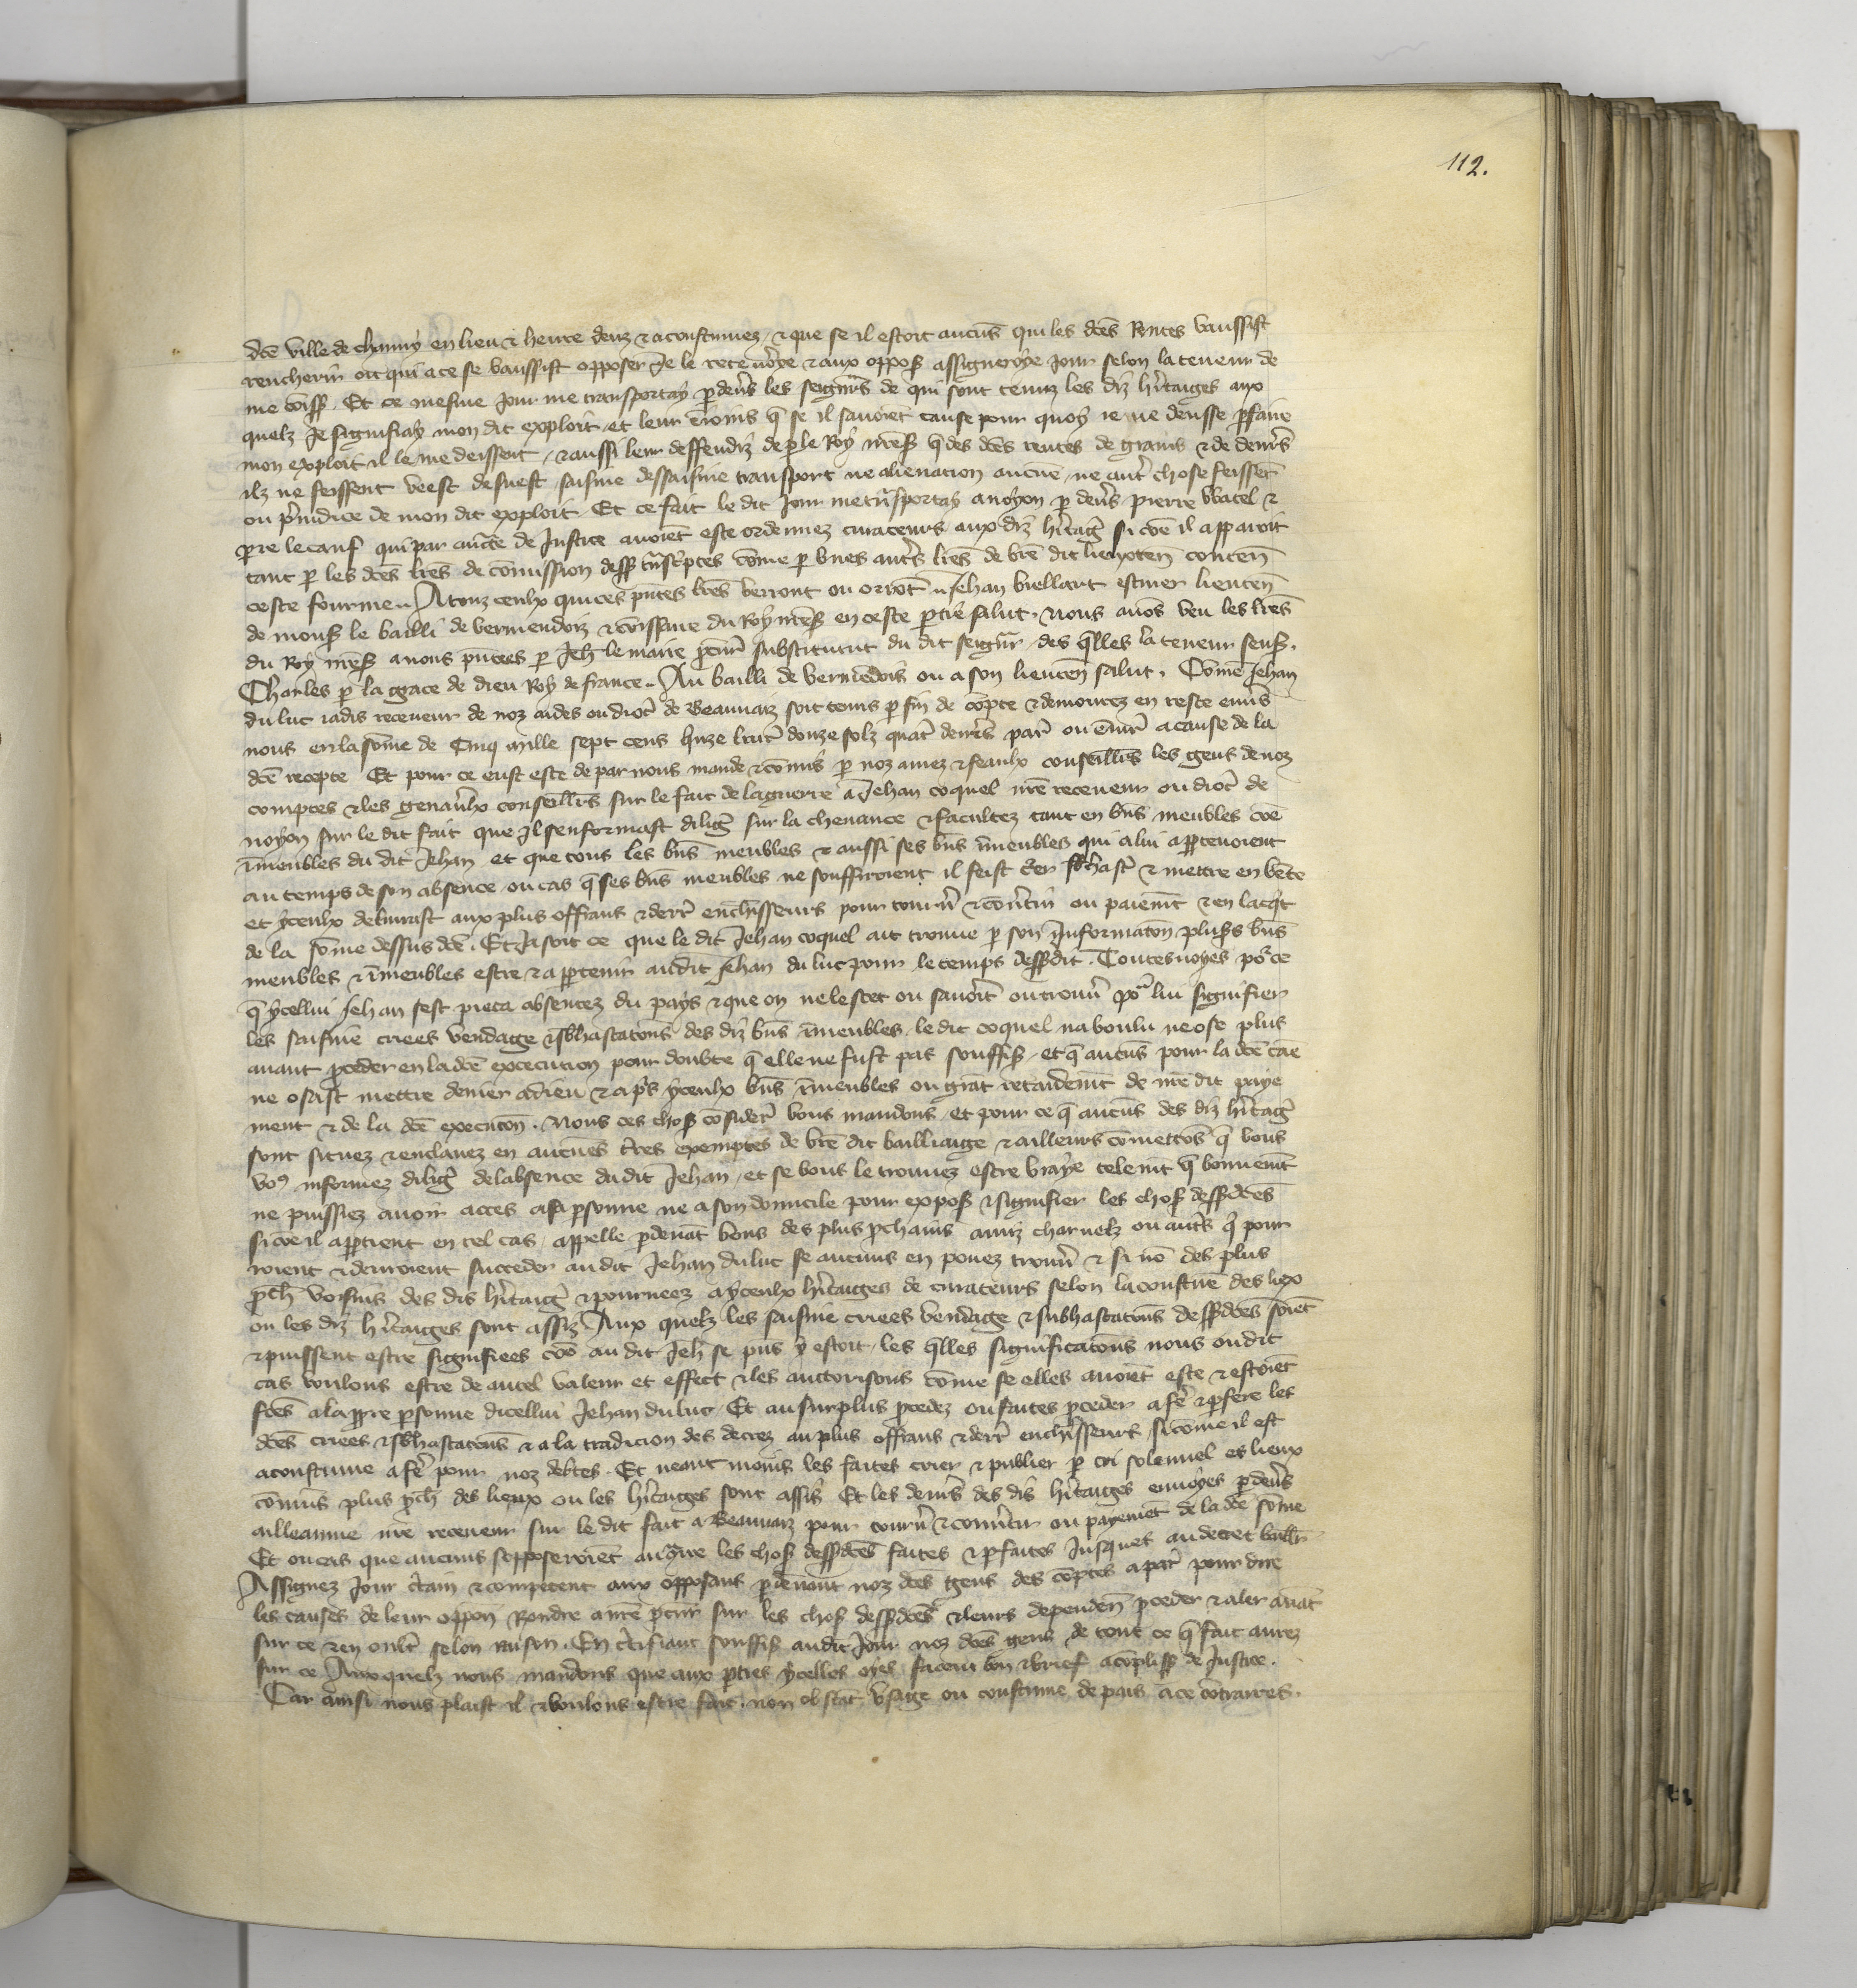 112.
dce ville de chauny en lieu & heure deuz & acoustumez / & que se il estoit aucuns qui les dces Rentes vausist
rencherir ou qui a ce se vausist opposer Je le recevroye & aux oppos assigneroye Jour selon la teneur de
me comiss. Et ce mesme Jour me transportay p devs les seigneurs de qui sont tenuz les diz hitaiges aux
quelz Je signifiay mon dit exploit, et leur enioins q se il savoiet cause pour quoy ie ne deusse pfaire
mon exploit il le me deissent, & aussi leur deffendiz de p le Roy nres q des dces rentes de grains & de deniers
ilz ne feissent vest devest saisine dessaisine transport ne alienation aucune, ne autre chose feisset
ou pjudice de mon dit exploit. Et ce fait le dit Jour me tnsportay a noyon p devs pierre watel &
pre lecauf qui par aucte de Justice avoiet este ordennez curateurs aux diz hitages si coe il apparoit
tant p les dces lres de comission dess tnscptes come p unes autres lres de vre dit lieuten conten
ceste fourme .. A touz ceulx qui ces pntes lres verront ou orrot .. Jehan viellart escuier lieuten
de mons le bailli de vermendoiz & comissaire du Roy nres en ceste ptie salut. Nous avos veu les lres
du Roy nres a nous pntees p Jeh le maire pcur substitutut du dit seignr, des qlles la teneur sensuit.
Charles p la grace de dieu Roy de france .. Au bailli de vermedois ou a son lieuten salut. Come Jehan
du luc iadis receveur de noz aides ou dioc de Beauvaiz soit tenus p fin de copte & demourez en reste envs
nous en la some de Cinq mille sept cens livres douze solz quatre deniers par ou envir a cause de la
dce recepte Et pour ce eust este de par nous mande & comis p noz amez & feaulx conseillrs les gens de noz
comptes & les genaulx conseillrs sur le fait de la guerre a Jehan coquel nre receveur ou dioc de
noyon sur le dit fait que Il senformast diligt sur la chevance & facultez tant en bns meubles coe
inmeubles du dit Jehan et que tous les bns meubles & aussi ses bns inmeubles qui a lui apptenoient
au temps de son absence ou cas q ses bns meubles ne souffiroient il feist crier subhaster & mettre en vente
et yceulx delivrast aux plus offrans & derr enchisseurs pour tourn & convtir ou paiemt & en lacqt
de la some dessus dce. Et Ja soit ce que le dit Jehan coquel ait trouve p son Informaton plus bns
meubles & inmeubles estre & apptenir audit Jehan du luc pour le temps dessdit. Toutesvoyes por ce
q ycellui Jehan sest pieca absentez du pays & que on ne le scet ou savoir ou trouv por lui signifier
les saisine criees vendage & subhastatons des diz bns inmeubles, le dit coquel na voulu ne ose plus
avant pceder en la dce execucion pour doubte q elle ne fust pas souffis, et q aucuns pour la dce cae
ne osast mettre denier a dieu & apres yceulx bns inmeubles ou grat retardemt de nre dit paye
ment & de la dce execuon. Nous ces choses considr vous mandons, et pour ce q aucuns des diz hitages
sont situez & enclavez en aucunes tres exemptes de vre dit bailliaige & ailleurs comettos q vous
vous informez diligt de labsence du dit Jehan, et se vous le trouvez estre vraye telemt q bonnemt
ne puissiez avoir acces a sa psonne ne a son domicile pour exposer & signifier les choses dessdces
si coe il apptient en tel cas, appelle p devat vous des plus pchains amiz charnelz ou autres q pour
roient & devroient succeder au dit Jehan du luc se aucuns en povez trouv & si no des plus
pch voisins des dis hitages & pourveez a yceulx hitaiges de curateurs selon la coustume des liex
ou les diz hitaiges sont assiz Aux quelz les saisine criees vendage & subhastatons dessdces soiet
& puissent estre signifiees coe au dit Jeh se pns y estoit, les qlles significatons nous ou dit
cas voulons estre de autel valeur et effect & les auctorisons come se elles avoiet este & estoiet
fces a la ppre psonne dicellui Jehan du luc. Et au surplus pcedez ou faites pceder a fe & pfere les
dces criees & subhastatons & a la tradicion des decrez au plus offrans & derr enchisseurs, si come il est
acoustume a fe pour noz debtes. Et neant moins les faites crier & publier p cri solennel es lieux
comuns plus pch des lieux ou les hitaiges sont assis Et les deniers des dis hitaiges envoyes p devs
ailleaume nre receveur sur le dit fait a Beauvaiz pour tourn & convtir ou payemet de la dce some
Et ou cas que aucuns sopposeroiet au gre les choses dessdces faites & pfaites Jusques au decret baillr
Assignez Jour ctain & competent aux opposans p devant noz dces gens des coptes a par pour dire
les causes de leur oppon Rendre a nre pcur sur les choses dessdces & leurs dependen pceder & aler avat
sur ce & en oultr selon raison. En ctifiant souffis au dit Jour noz dces gens de tout ce q fait aurez
sur ce Aux quelz nous mandons que aux pties ycelles oyes facent bon & brief acopliss de Justice.
Car ainsi nous plaist il & voulons estre fait. non obstat usaige ou coustume de pais a ce cotraires.